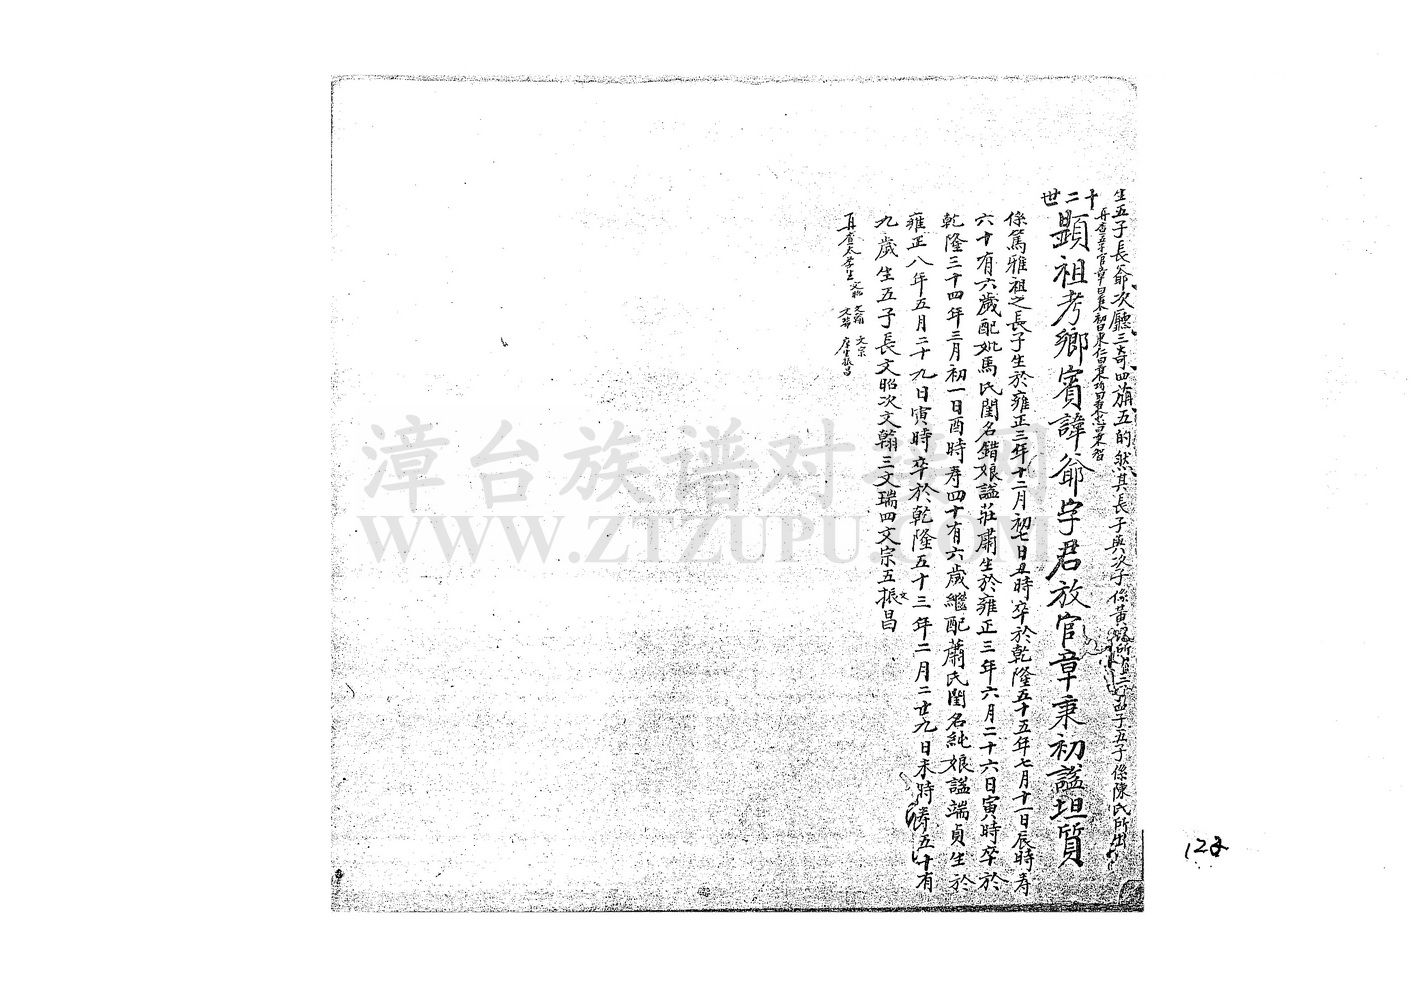 生五子長爺次廳三奇四旃五的然其長子與次子係黃所出三子四子五子係陳氏所出
再查五子官章曰秉初曰秉仁曰秉
十二世
顯祖考鄉賓諱爺字君放官章秉初謚坦質
係篤雅祖之長子生於雍正三年十二月初七日丑時卒於乾隆五十五年七月十一日辰時寿
六十有六歲配妣馬氏閨名錯娘謚莊肅生於雍正三年六月二十六日寅時卒於
乾隆三十四年三月初一日酉時寿四十有六歲繼配蕭氏閨名純娘謚端貞生於
雍正八年五月二十九日寅時卒於乾隆五十三年二月二廿九日未時壽五十有
九歲生五子長文昭次文翰三文瑞四文宗五文振昌
再查太學生 文翰 文宗 庠生振昌
漳台族谱对接网
WWW.ZTZUPU.COM